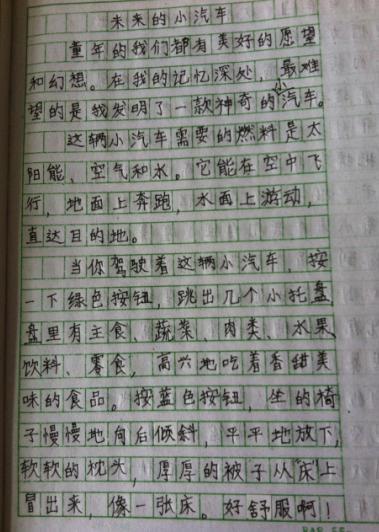 未来的小汽车
童年的我们都有美好的愿望
和幻想。在我的记忆深处，最难
望的是我发明了一款神奇的小汽车。
这辆小汽车需要的燃料是太
阳能、空气和水。它能在空中飞
行，地面上奔跑，水面上游动，
直达目的地。
当你驾驶着这辆小汽车，按
一下绿色按钮，跳出几个小托盘
盘里有主食、蔬菜、肉类、水果、
饮料、零食，高兴地吃着香甜美
味的食品。按蓝色按钮，坐的椅
子慢慢地向后倾斜，平平地放下，
软软的枕头，厚厚的被子从“床”上
冒出来，像一张床。好舒服啊！